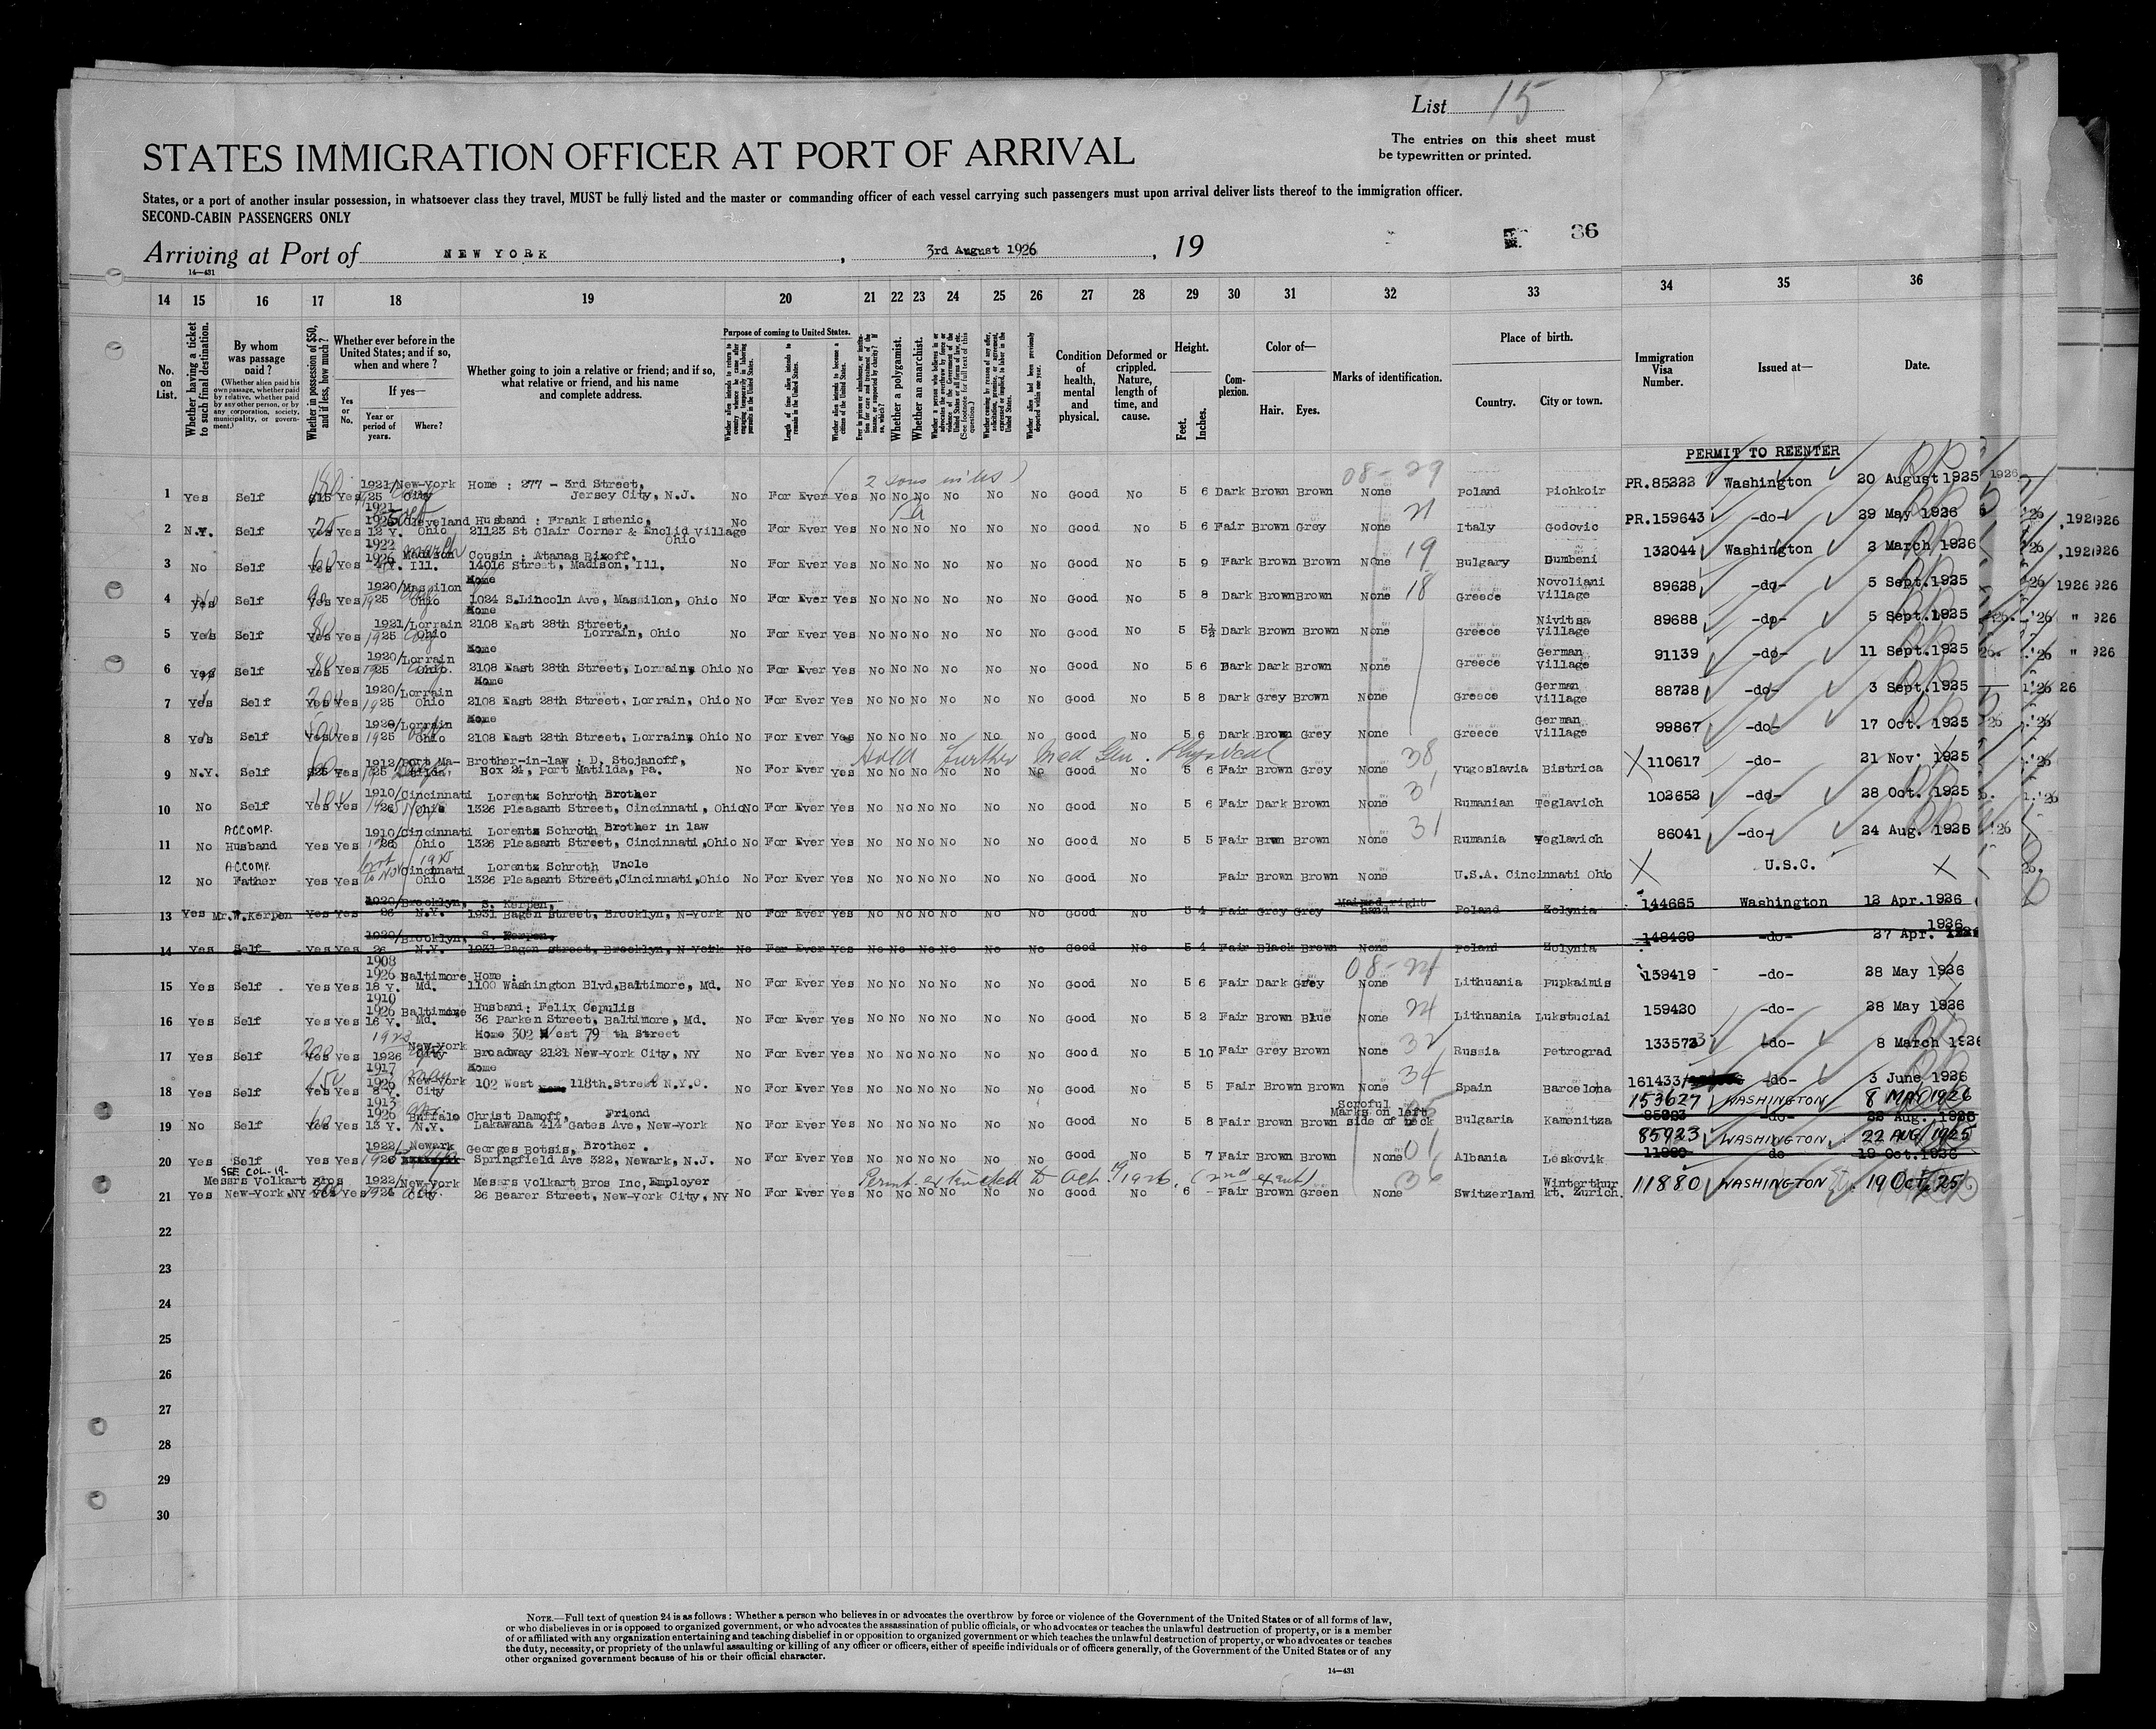 List 15
The entries on this sheet must
be typewritten or printed.
STATES IMMIGRATION OFFICER AT PORT OF ARRIVAL
States, or a port of another insular possession, in whatsoever class they travel, MUST be fully listed and the master or commanding officer of each vessel carrying such passengers must upon arrival deliver lists thereof to the immigration officer.
SECOND-CABIN PASSENGERS ONLY
36
Arriving at Port of NEW YORK, 3rd August 1926, 19
14—431
14 15 16 17 18 19 20 21 22 23 24 25 26 27 28 29 30 31 32 33 34 35 36
No. on List.
Whether having a ticket to such final destination.
By whom was passage paid?
(Whether alien paid his own passage, whether paid by relative, whether paid by any other person, or by any corporation, society, municipality, or government.)
Whether in possession of $50, and if less, how much?
Whether ever before in the United States; and if so, when and where?
If yes—
Yes or No.
Year or period of years.
Where?
Whether going to join a relative or friend; and if so, what relative or friend, and his name and complete address.
Purpose of coming to United States.
Length of time alien intends to remain in the United States.
Whether alien intends to become a citizen of the United States.
Whether a polygamist.
Whether an anarchist.
Condition of health, mental and physical.
Deformed or crippled. Nature, length of time, and cause.
Height.
Feet. Inches.
Complexion.
Color of—
Hair. Eyes.
Marks of identification.
Place of birth.
Country. City or town.
Immigration Visa Number.
Issued at—
Date.
PERMIT TO REENTER
(2 sons in US) 08-29
1 Yes Self $15 Yes 1921/25 New-York City Home : 277 - 3rd Street, Jersey City, N.J. No For Ever Yes No No No No No No Good No 5 6 Dark Brown Brown None Poland Pichkoir PR.85222 Washington 20 August 1925
2 N.Y. Self Yes Yes 12 Y. Cleveland Ohio Husband : Frank Istenic, 21123 St Clair Corner & Enclid Village Ohio No For Ever Yes No No No No No No Good No 5 6 Fair Brown Grey None 21 Italy Godovic PR.159643 -do- 29 May 1926
3 No Self Yes Yes 1922 1926 Madison Ill. Cousin : Atanas Rixoff, 14016 Street, Madison, Ill. No For Ever Yes No No No No No No Good No 5 9 Fark Brown Brown None 19 Bulgary Dumbeni 132044 Washington 2 March 1926
4 Yes Self Yes Yes 1920/1925 Massilon Ohio Home 1024 S.Lincoln Ave, Massilon, Ohio No For Ever Yes No No No No No No Good No 5 8 Dark Brown Brown None 18 Greece Novoliani Village 89628 -do- 5 Sept.1925
5 Yes Self Yes Yes 1921/1925 Lorrain Ohio Home 2108 East 28th Street, Lorrain, Ohio No For Ever Yes No No No No No No Good No 5 5½ Dark Brown Brown None Greece Nivitsa Village 89688 -do- 5 Sept.1925
6 Yes Self Yes Yes 1920/1925 Lorrain Ohio. Home 2108 East 28th Street, Lorrain, Ohio No For Ever Yes No No No No No No Good No 5 6 Dark Dark Brown None Greece German Village 91139 -do- 11 Sept.1925
7 Yes Self Yes Yes 1920/1925 Lorrain Ohio Home 2108 East 28th Street, Lorrain, Ohio No For Ever Yes No No No No No No Good No 5 8 Dark Grey Brown None Greece German Village 88728 -do- 3 Sept.1925
8 Yes Self Yes Yes 1920/1925 Lorrain Ohio Home 2108 East 28th Street, Lorrain, Ohio No For Ever Yes No No No No No No Good No 5 6 Dark Brown Grey None Greece German Village 99867 -do- 17 Oct. 1925
Hold further Med Gen. Physical
9 N.Y. Self $25 Yes 1912/1925 Port Matilda, Brother-in-law : D. Stojanoff, Box 24, Port Matilda, Pa. No For Ever Yes No No No No No No Good No 5 6 Fair Brown Grey None 38 Yugoslavia Bistrica 110617 -do- 21 Nov 1925
10 No Self Yes Yes 1910/ Cincinnati Ohio Lorentz Schroth Brother 1326 Pleasant Street, Cincinnati, Ohio No For Ever Yes No No No No No No Good No 5 6 Fair Dark Brown None 31 Rumanian Teglavich 102653 -do- 28 Oct. 1925
11 No ACCOMP. Husband Yes Yes 1910/ Cincinnati Ohio Lorentz Schroth Brother in law 1326 Pleasant Street, Cincinnati, Ohio No For Ever Yes No No No No No No Good No 5 5 Fair Brwn Brown None 31 Rumania Teglavich 86041 -do- 24 Aug. 1925
12 No ACCOMP. Father Yes Yes Cincinnati Ohio Lorentz Schroth Uncle 1326 Pleasant Street,Cincinnati,Ohio No For Ever Yes No No No No No No Good No Fair Brown Brown None U.S.A. Cincinnati Ohio X U.S.C. X
13 Yes Mr.W.Kerpen Yes Yes 1920/26 Brooklyn, N.Y. S. Kerpen, 1931 Bagen Street, Brooklyn, N-York No For Ever Yes No No No No No No Good No 5 4 Fair Grey Grey Maimed right hand Poland Zolynia 144665 Washington 12 Apr.1926
14 Yes Self Yes Yes 1920/26 Brooklyn, N.Y. S. Kerpen, 1931 Bagen street, Brooklyn, N-York No For Ever Yes No No No No No No Good No 5 4 Fair Black Brown None Poland Zolynia 148469 -do- 27 Apr. 1926
15 Yes Self Yes Yes 1908 1926 18 Y. Baltimore Md. Home : 1100 Washington Blvd,Baltimore, Md. No For Ever Yes No No No No No No Good No 5 6 Fair Dark Grey None 08-24 Lithuania Pupkaimis 159419 -do- 28 May 1926
16 Yes Self Yes Yes 1910 1926 16 Y. Baltimore Md. Husband: Felix Cepulis 36 Parken Street, Baltimore, Md. No For Ever Yes No No No No No No Good No 5 2 Fair Brown Blue None 24 Lithuania Lukstuciai 159420 -do- 28 May 1926
17 Yes Self Yes Yes 1925 1926 New-York City Home 302 West 79 th Street Broadway 2121 New-York City, NY No For Ever Yes No No No No No No Good No 5 10 Fair Grey Brown None 32 Russia Petrograd 133573 -do- 8 March 1926
18 Yes Self Yes Yes 1917 1926 8 Y. New-York City Home 102 West 118th.Street N.Y.C. No For Ever Yes No No No No No No Good No 5 5 Fair Brown Brown None 34 Spain Barcelona 161433 -do- 3 June 1926
153627 WASHINGTON 8 MAY 1926
19 No Self Yes Yes 1913 1926 13 Y. Buffalo N.Y. Christ Damoff, Friend Lakawana 414 Gates Ave, New-York No For Ever Yes No No No No No No Good No 5 8 Fair Brown Brown Scroful Marks on left side of neck Bulgaria Kamenitza 85923 -do- 22 Aug. 1925
85923 WASHINGTON 22 AUG 1925
20 Yes Self Yes Yes 1922/ Newark Georges Botsis, Brother. Springfield Ave 322, Newark, N.J. No For Ever Yes No No No No No No Good No 5 7 Fair Brown Brown None 01 Albania Leskovik 11880 do 19 Oct.1926
Permit extended to Oct 19 1926. (2nd extent)
21 Yes SEE COL-19- Messrs Volkart Bros New-York,NY Yes Yes 1922/ New-York City Messrs Volkart Bros Inc, Employer 26 Bearer Street, New-York City, NY No For Ever Yes No No No No No No Good No 6 - Fair Brown Green None 36 Switzerland Winterthur kt. Zurich. 11880 WASHINGTON 19 Oct. 25
22
23
24
25
26
27
28
29
30
NOTE.—Full text of question 24 is as follows: Whether a person who believes in or advocates the overthrow by force or violence of the Government of the United States or of all forms of law,
or who disbelieves in or is opposed to organized government, or who advocates the assassination of public officials, or who advocates or teaches the unlawful destruction of property, or is a member
of or affiliated with any organization entertaining and teaching disbelief in or opposition to organized government or which teaches the unlawful destruction of property, or who advocates or teaches
the duty, necessity, or propriety of the unlawful assaulting or killing of any officer or officers, either of specific individuals or of officers generally, of the Government of the United States or of any
other organized government because of his or their official character.
14—431